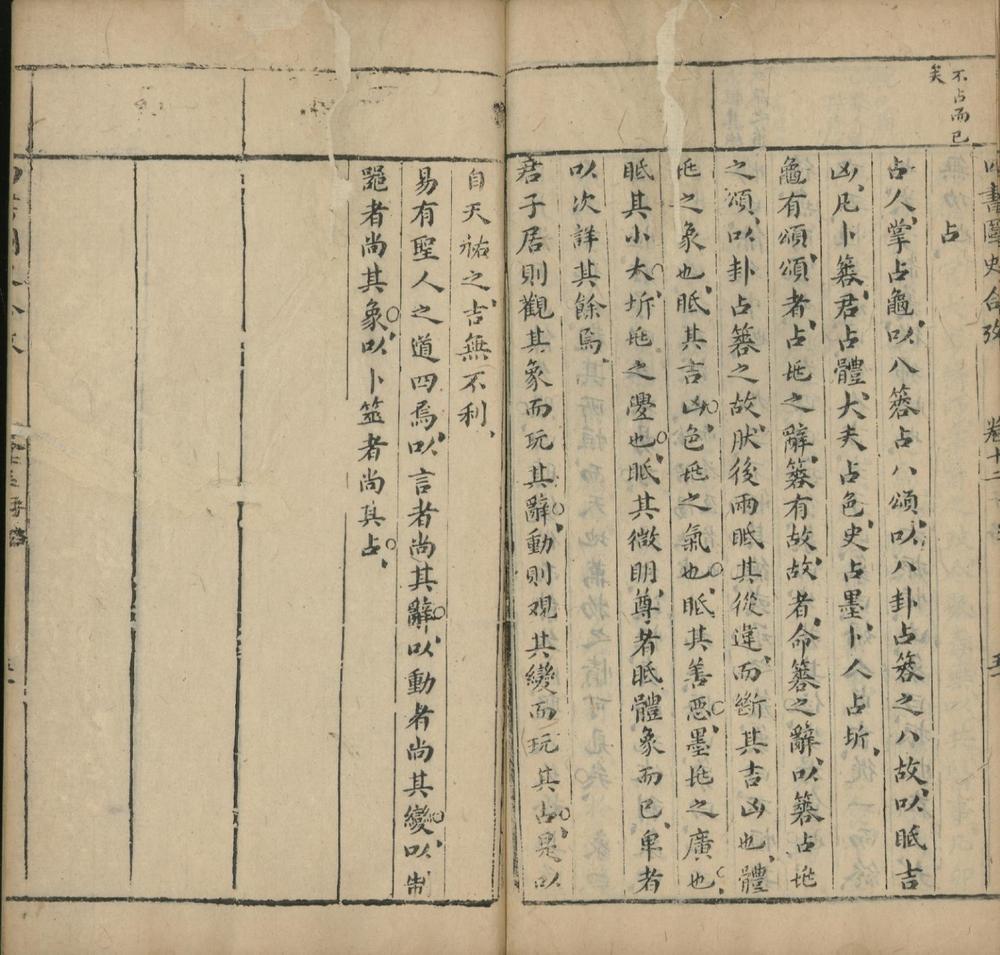 四書圖史合攷 卷十二
不占而已
矣
占
占人掌占龜以八簭占八頌以八卦占簭之八故以眡吉
凶凡卜簭君占體大夫占色史占墨卜人占坼
龜有頌頌者占兆之辭簭有故故者命簭之辭以簭占兆
之頌以卦占簭之故肰後兩眡其從違而斷其吉凶也體
兆之象也眡其吉凶色兆之氣也眡其善惡墨兆之廣也
眡其小大坼兆之舋也眡其微明尊者眡體象而已卑者
以次詳其餘焉
君子居則觀其象而玩其辭動則观其變而玩其占是以
自天祐之吉無不利
易有聖人之道四焉以言者尚其辭以動者尚其變以制
噐者尚其象以卜筮者尚其占